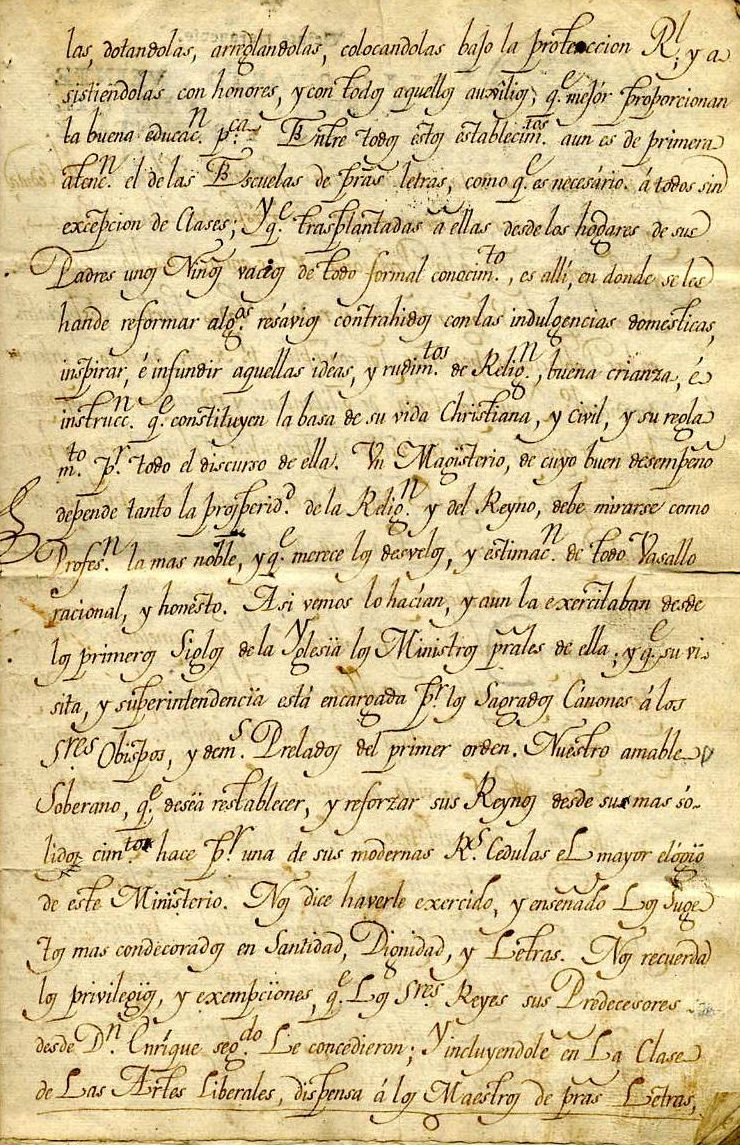 las, dotandolas, arreglandolas, colocandolas bajo la proteccion Rl; y a
sistiendolas con honores, y con todos aquellos auxilios, qe. mejór proporcionan
la buena educacn. pca. Entre todos estos establecimtos. aun es de primera
atencn. el de las Escuelas de pras letras, como qe. es necesário á todos sin
excepcion de Clases; Y qe. trasplantadas a ellas desde los hogares de sus
Padres unos Niños vacios de todo formal conocimto., es allí, en donde se les
hande reformar algos. resávios contrahidos con las indulgencias domesticas,
inspirar, é infundir aquellas idéas, y rudimtos. de Relign., buena crianza, é
instruccn. qe. constituyen la basa de su vida Christiana, y Civil, y su regla
mto. pr. todo el discurso de ella. Un Magisterio, de cuyo buen desempeño
depende tanto la prosperidd. de la Relign. y del Reyno, debe mirarse como
Profesn. la mas noble, y qe. merece los desvelos, y estimacn. de todo Vasallo
racional, y honesto. Asi vemos lo hacían, y aun la exercitaban desde
los primeros Siglos de la Yglesia los Ministros prales de ella; y qe. su vi-
sita, y superintendencia está encargada pr. los Sagrados Cánones á los
Sres Obispos, y dems. Prelados del primer orden. Nuestro amable
Soberano, qe. deséa restablecer, y reforzar sus Reynos desde sus mas só-
lidos cimtos hace pr. una de sus modernas Rs. Cedulas el mayor elógio
de este Ministerio. Nos dice haverle exercido, y enseñado Los Suge
tos mas condecorados en Santidad, Dignidad, y Letras. Nos recuerda
los privilegios, y exempciones, qe. Los Sres. Reyes sus Predecesores
desde Dn. Enríque segdo. Le concedieron; Y incluyendole en La Clase
de Las Artes Liberales, dispensa á los Maestros de pras Letras,